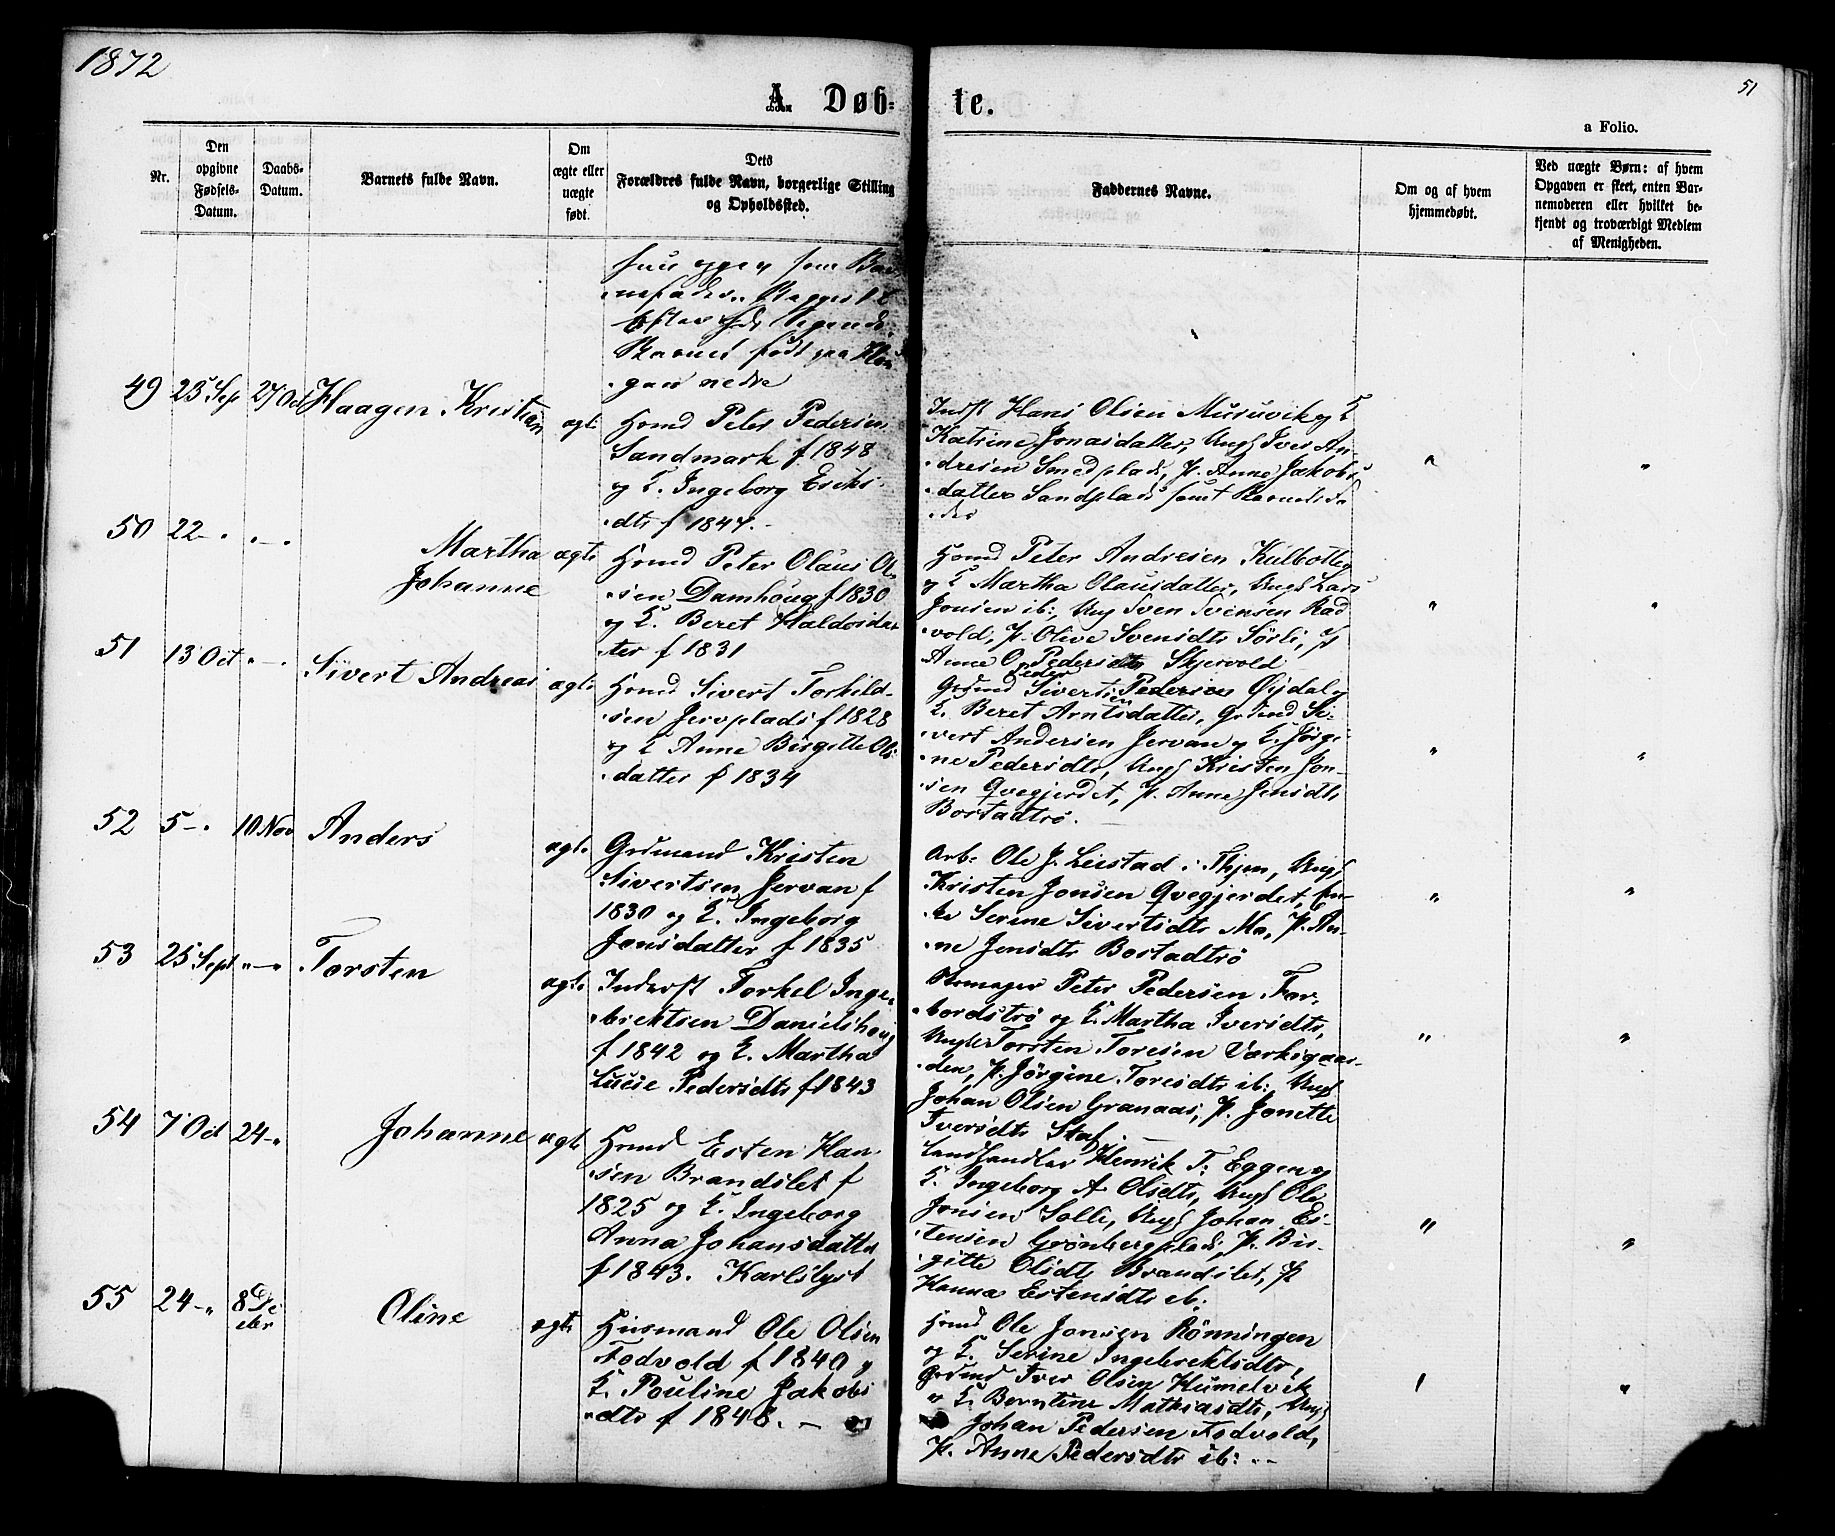 1872
51
A. Døb- te.
a Folio.
Nr.
Den opgivne Fødsels-Datum.
Daabs-Datum.
Barnets fulde Navn.
Om ægte eller uægte født.
Dets Forældres fulde Navn, borgerlige Stilling og Opholdssted.
Faddernes Navne.
Om og af hvem hjemmedøbt.
Ved uægte Børn: af hvem Opgaven er skeet, enten Barnemoderen eller hvilket bekjendt og troværdigt Medlem af Menigheden.
født paa
nedre
49 23 Sep 27 Oct Haagen Kristian ægte
Hsmd Peter Pedersen
Sandmark f 1848
og K. Ingeborg Eriks-
dtr f 1847.
Indst Hans Olsen Muruvik og K
Katrine Jonasdatter, Ungk Iver An-
dresen Smedplads, P. Anne Jakobs
datter Sandplads samt Barnets Fa-
der
50 22 - " " - " Martha Johanne ægte
Hsmd Peter Olaus Ol-
sen Damhoug f 1830
og K. Beret Haldosdat
ter f 1831
Hsmd Peter Andresen Kulbotleg
og K Martha Olausdatter, Ungk Lars
Jonsen ib:, Ungk Sven Svensen Rad
vold, P. Olive Svensdtr Sörli, P
Anne O. Pedersdtr Skjervold
51 13 Oct " - " Sivert Andreas ægte
Hsmd Sivert Torkild-
sen Jervplads f 1828
og K Anne Birgitte Ols
datter f 1834
Grdmd Sivertsen Øydal og
K. Beret Arntsdatter, Grdmd Si-
vert Andersen Jervan og K. Jørgi-
ne Pedersdtr, Ungk Kristen Jon-
sen Qvegjerdet, P. Anne Jensdtr
Bostadtrø.
52 5 - " 10 Nov Anders ægte
Grdmand Kristen
Sivertsen Jervan f
1830 og K. Ingeborg
Jonsdatter f 1835
Arb. Ole J. Leistad i Thjem, Ungk
Kristen Jonsen Qvegjerdet, En-
ke Serine Sivertsdtr Mo, P. An-
ne Jensdtr Bostadtrö
53 25 Sept " - " Torsten ægte
Inderst Torkel Inge-
brektsen Danielshoug
f 1842 og K. Martha
Lucie Pedersdtr f 1843
Skomager Peter Pedersen For-
bordstrø og K. Martha Iversdtr,
Ungk Torsten Toresen Værksgaar-
den, P. Jörgine Toresdtr ib:, Ungk
Johan Olsen Granaas, P. Jonette
Iversdtr Staf. -
54 7 Oct 24 - " Johanne ægte
Hsmd Esten Han-
sen Brandslet f
1825 og K. Ingeborg
Anna Johansdatter
f 1843. Karlslyst
Landhandler Henrik T: Eggen og
K. Ingeborg A Olsdtr, Ungk Ole
Jonsen Solli, Ungk Johan Es-
tensen Grønbergplads, P. Bir-
gitte Olsdtr Brandslet, P
Hanna Estensdtr ib.
55 24 - " 8 De cbr Oline ægte
Husmand Ole Olsen
Fodvold f 1840 og
K. Pouline Jakobs
dtr f 1848. -
Hsmd Ole Jonsen Rönningen
og K. Serine Ingebrektsdtr,
Grdmd Iver Olsen Humelvik
og K. Berntine Mathiasdtr, Ungk
Johan Pedersen Fodvold,
P. Anne Pedersdtr ib: -